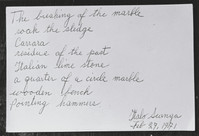 The breaking of the marble
soak the sledge
Carrara
residue of the past
Italian lime stone
a quarter of a circle marble
wooden bench
Pointing hammers
Italo Scanga
Feb 27, 1981